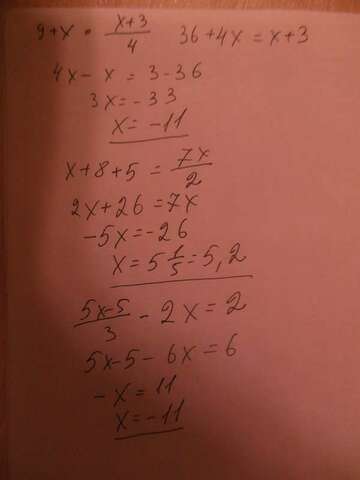 9+x = \frac{x+3}{4} 36+4x = x+3
4x - x = 3 - 36
3x = -33
x = -11
x+8+5 = \frac{7x}{2}
2x+26 = 7x
-5x = -26
x = 5\frac{1}{5} = 5,2
\frac{5x-5}{3} - 2x = 2
5x-5-6x = 6
-x = 11
x = -11